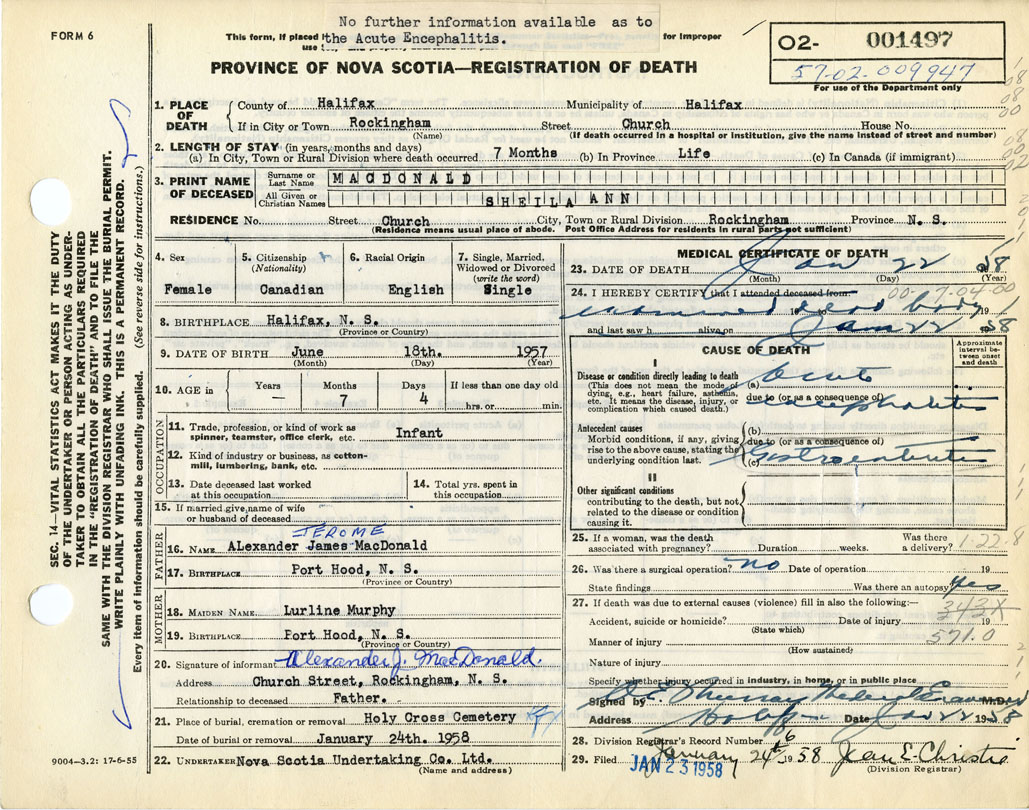 No further information available as to
the Acute Encephalitis.
FORM 6
This form, if placed for improper
use
02- 001497
57-02-009947
For use of the Department only
PROVINCE OF NOVA SCOTIA—REGISTRATION OF DEATH
1. PLACE OF DEATH
County of Halifax Municipality of Halifax
If in City or Town Rockingham Street Church House No.
(Name) (If death occurred in a hospital or institution, give the name instead of street and number)
2. LENGTH OF STAY (in years, months and days)
(a) In City, Town or Rural Division where death occurred 7 Months (b) In Province Life (c) In Canada (if immigrant)
3. PRINT NAME OF DECEASED
Surname or Last Name MACDONALD
All Given or Christian Names SHEILA ANN
RESIDENCE No. Street Church City, Town or Rural Division Rockingham Province N. S.
(Residence means usual place of abode. Post Office Address for residents in rural parts not sufficient)
4. Sex Female
5. Citizenship (Nationality) Canadian
6. Racial Origin English
7. Single, Married, Widowed or Divorced (write the word) Single
8. BIRTHPLACE Halifax, N. S.
(Province or Country)
9. DATE OF BIRTH June 18th. 1957
(Month) (Day) (Year)
10. AGE in Years — Months 7 Days 4 If less than one day old hrs. or min.
OCCUPATION
11. Trade, profession or kind of work as spinner, teamster, office clerk, etc. Infant
12. Kind of industry or business, as cotton-mill, lumbering, bank, etc.
13. Date deceased last worked at this occupation
14. Total yrs. spent in this occupation
15. If married give name of wife or husband of deceased
FATHER
JEROME
16. NAME ALexander James MacDonald
17. BIRTHPLACE Port Hood, N. S.
(Province or Country)
MOTHER
18. MAIDEN NAME Lurline Murphy
19. BIRTHPLACE Port Hood, N. S.
(Province or Country)
20. Signature of informant Alexander J. MacDonald.
Address Church Street, Rockingham, N. S.
Relationship to deceased Father.
21. Place of burial, cremation or removal Holy Cross Cemetery
Date of burial or removal January 24th. 1958
22. UNDERTAKER Nova Scotia Undertaking Co. Ltd.
(Name and address)
MEDICAL CERTIFICATE OF DEATH
23. DATE OF DEATH Jan 22 1958
(Month) (Day) (Year)
24. I HEREBY CERTIFY that I attended deceased from:
00-17-04-00
examined dead body
19 to 19
and last saw h alive on Jan 22 1958
CAUSE OF DEATH
Approximate interval between onset and death
I
Disease or condition directly leading to death
(This does not mean the mode of dying, e.g., heart failure, asthenia, etc. It means the disease, injury, or complication which caused death.)
(a) Acute
due to (or as a consequence of)
encephalitis
Antecedent causes
Morbid conditions, if any, giving rise to the above cause, stating the underlying condition last.
(b)
due to (or as a consequence of)
(c) Gastroenteritis
II
Other significant conditions
contributing to the death, but not related to the disease or condition causing it.
25. If a woman, was the death associated with pregnancy? Duration weeks. Was there a delivery? 1-22-8
26. Was there a surgical operation? no Date of operation 19
State findings Was there an autopsy yes
27. If death was due to external causes (violence) fill in also the following:—
343X
Accident, suicide or homicide? Date of injury 19
(State which)
571.0
Manner of injury
(How sustained)
Nature of injury
Specify whether injury occurred in industry, in home, or in public place
Signed by M.D.
Address Date Jan 22 1958
28. Division Registrar's Record Number 6
29. Filed January 24th 1958 Jean E Christie
JAN 23 1958
(Division Registrar)
SEC. 14—VITAL STATISTICS ACT MAKES IT THE DUTY
OF THE UNDERTAKER OR PERSON ACTING AS UNDER-
TAKER TO OBTAIN ALL THE PARTICULARS REQUIRED
IN THE "REGISTRATION OF DEATH" AND TO FILE THE
SAME WITH THE DIVISION REGISTRAR WHO SHALL ISSUE THE BURIAL PERMIT.
WRITE PLAINLY WITH UNFADING INK. THIS IS A PERMANENT RECORD.
Every item of information should be carefully supplied. (See reverse side for instructions.)
9004—3.2: 17-6-55